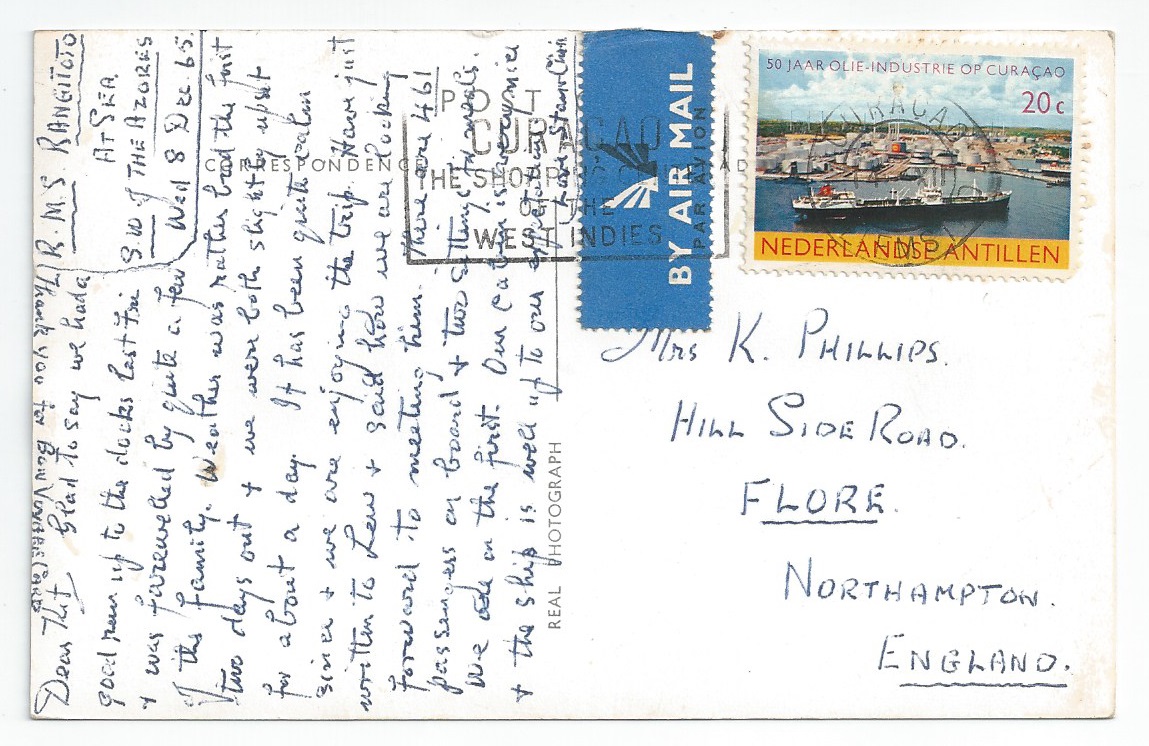 R.M.S. RANGITOTO
AT SEA
S.W OF THE AZORES
Wed 8 Dec 65.
Dear Kit Glad to say we had a
good run up to the docks last Fri
+ was farewelled by quite a few
of the family. Weather was rather bad the first
two days out + we were both slightly upset
for about a day. It has been quite calm
since + we are enjoying the trip. Have just
written to Lew + said how we are looking
forward to meeting him. There are 461
passengers on board + two sittings to meals.
We are on the first. Our Cabin is very nice
+ the ship is well "up to our expectations
Love Stan +
Thank you for Bon Voyage Cards
CORRESPONDENCE
REAL PHOTOGRAPH
POST
CURAÇAO
THE SHOPPING
OF THE
WEST INDIES
BY AIR MAIL
PAR AVION
50 JAAR OLIE-INDUSTRIE OP CURAÇAO
20c
NEDERLANDSE ANTILLEN
CURACAO
Mrs K. PHILLIPS.
HILL SIDE ROAD.
FLORE.
NORTHAMPTON.
ENGLAND.